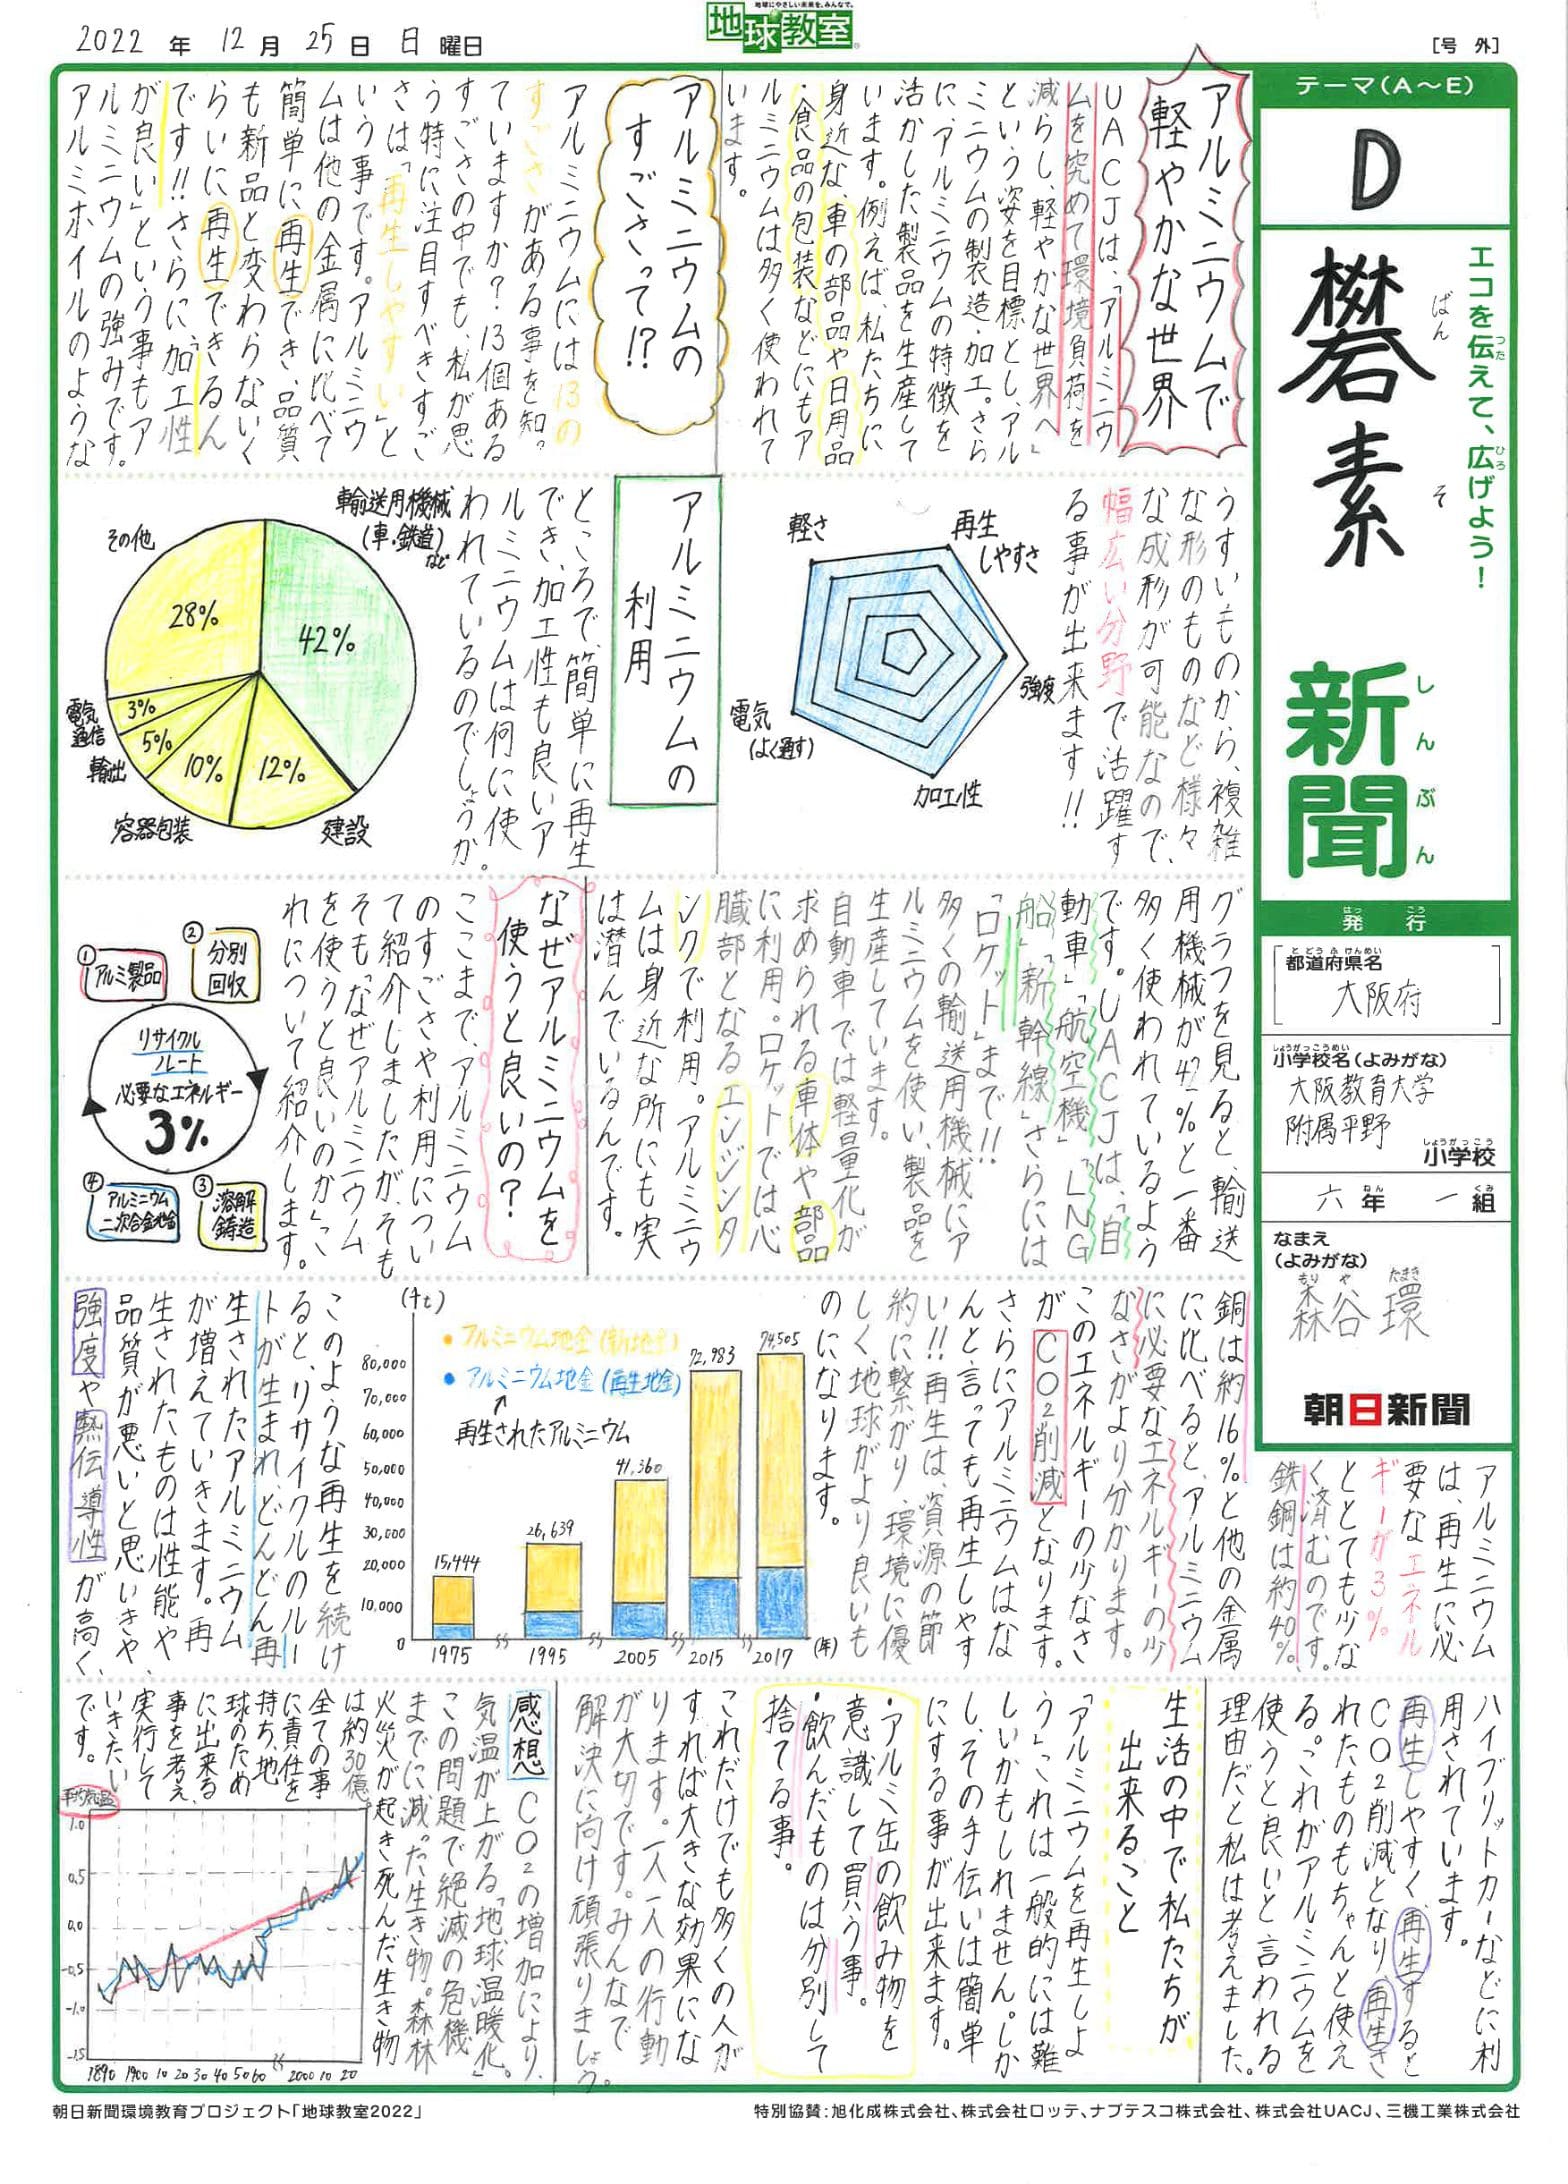 2022年12月25日日曜日
地球にやさしい未来を、みんなで。
地球教室
[号外]
テーマ(A〜E)
D
エコを伝えて、広げよう！
つた
ひろ
礬素
ばんそ
新聞
しんぶん
発行
はっこう
都道府県名
とどうふけんめい
大阪府
小学校名(よみがな)
しょうがっこうめい
大阪教育大学
附属平野
小学校
しょうがっこう
六年一組
ねん
くみ
なまえ
(よみがな)
森谷環
もりやたまき
朝日新聞
アルミニウムで
軽やかな世界
UACJは、「アルミニウ
ムを究めて環境負荷を
減らし、軽やかな世界へ」
という姿を目標とし、アル
ミニウムの製造・加工。さら
に、アルミニウムの特徴を
活かした製品を生産して
います。例えば、私たちに
身近な、車の部品や日用品
・食品の包装などにもア
ルミニウムは多く使われて
います。
アルミニウムの
すごさって!?
アルミニウムには13の
すごさがある事を知っ
ていますか？13個ある
すごさの中でも、私が思
う特に注目すべきすご
さは「再生しやすい」と
いう事です。アルミニウ
ムは他の金属に比べて
簡単に再生でき、品質
も新品と変わらないく
らいに再生できるん
です!!さらに、「加工性
が良い」という事もア
ルミニウムの強みです。
アルミホイルのような
うすいものから、複雑
な形のものなど様々
な成形が可能なので、
幅広い分野で活躍す
る事が出来ます!!
軽さ
再生
しやすさ
強度
加工性
電気
(よく通す)
アルミニウムの
利用
ところで、簡単に再生
でき、加工性も良いア
ルミニウムは何に使
われているのでしょうか。
輸送用機械
(車・鉄道)
など
42%
建設
12%
容器包装
10%
輸出
5%
電気
通信
3%
その他
28%
グラフを見ると、輸送
用機械が42%と一番
多く使われているよう
です。UACJは、「自
動車」「航空機」「LNG
船」「新幹線」さらには
「ロケット」まで!!
多くの輸送用機械にア
ルミニウムを使い、製品を
生産しています。
自動車では軽量化が
求められる車体や部品
に利用。ロケットでは心
臓部となるエンジンタ
ンクで利用。アルミニウ
ムは身近な所にも実
は潜んでいるんです。
なぜアルミニウムを
使うと良いの？
ここまで、アルミニウム
のすごさや利用につい
て紹介しましたが、そも
そも「なぜアルミニウム
を使うと良いのか」こ
れについて紹介します。
①
アルミ製品
②
分別
回収
③
溶解
鋳造
④
アルミニウム
二次合金地金
リサイクル
ルート
必要なエネルギー
3%
アルミニウム
は、再生に必
要なエネル
ギーが3%
ととても少な
く済むのです。
鉄鋼は約40%、
銅は約16%と他の金属
に比べると、アルミニウム
に必要なエネルギーの少
なさがより分かります。
このエネルギーの少なさ
がCO2削減となります。
さらにアルミニウムはな
んと言っても再生しやす
い!!再生は、資源の節
約に繋がり、環境に優
しく、地球がより良いも
のになります。
(千t)
アルミニウム地金(新地金)
アルミニウム地金(再生地金)
再生されたアルミニウム
80,000
70,000
60,000
50,000
40,000
30,000
20,000
10,000
0
15,444
26,639
41,360
72,983
74,505
1975
1995
2005
2015
2017
(年)
このような再生を続け
ると、リサイクルのルー
トが生まれ、どんどん再
生されたアルミニウム
が増えていきます。再
生されたものは性能や、
品質が悪いと思いきや、
強度や熱伝導性が高く、
ハイブリットカーなどに利
用されています。
再生しやすく、再生すると
CO2削減となり、再生さ
れたものもちゃんと使え
る。これがアルミニウムを
使うと良いと言われる
理由だと私は考えました。
生活の中で私たちが
出来ること
「アルミニウムを再生しよ
う」これは一般的には難
しいかもしれません。しか
し、その手伝いは簡単
にする事が出来ます。
・アルミ缶の飲み物を
意識して買う事。
・飲んだものは分別して
捨てる事。
これだけでも多くの人が
すれば大きな効果にな
ります。一人一人の行動
が大切です。みんなで
解決に向け頑張りましょう。
感想
CO2の増加により、
気温が上がる「地球温暖化」。
この問題で絶滅の危機
までに減った生き物。森林
火災が起き死んだ生き物
は約30億。
全ての事
に責任を
持ち、地
球のため
に出来る
事を考え、
実行して
いきたい
です。
平均気温
1.0
0.5
0.0
-0.5
-1.0
-1.5
1890 1900 10 20 30 40 50 60 2000 10 20
朝日新聞環境教育プロジェクト「地球教室2022」
特別協賛：旭化成株式会社、株式会社ロッテ、ナブテスコ株式会社、株式会社UACJ、三機工業株式会社